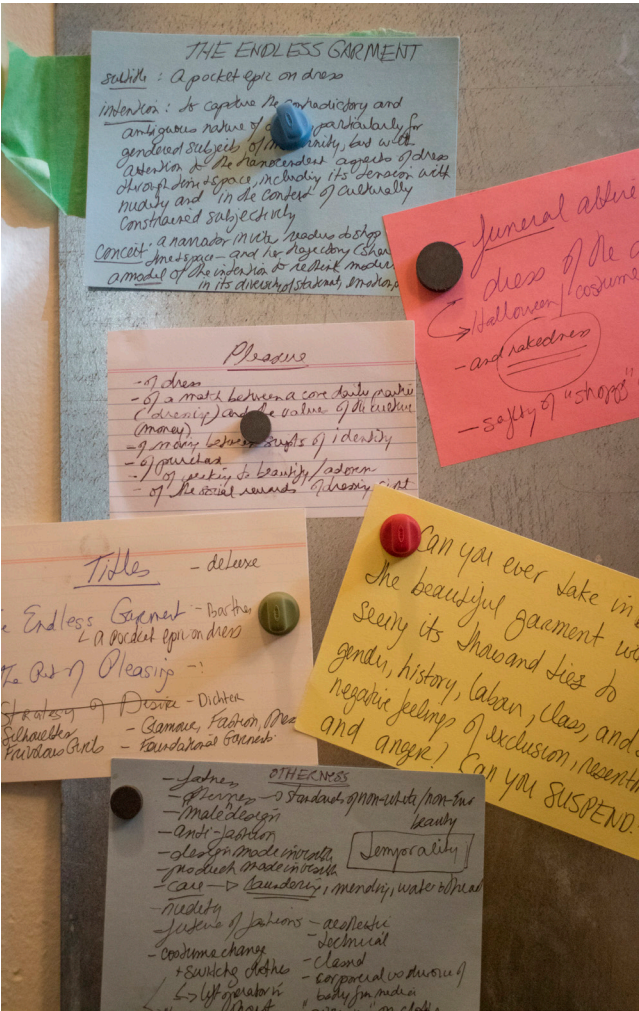 THE ENDLESS GARMENT
subtitle: A pocket epic on dress
intention: to capture the contradictory and
ambiguous nature of particularly for
gendered subject, of modernity, but with
attention to the transcendent aspects of dress
through time + space, including its tension with
nudity and in the context of culturally
constrained subjectivity
Concept: a narrator invites readers to shop
time + space — and her trajectory (
a model of the intention to rethink
in its diversity of
- funeral attire
dress of the
→ Halloween / costume
- and nakedness
- safety of "shopp"
Pleasure
- of dress
- of a math between a core daily
(dressing) and the value of the culture
(money)
- of moving between scripts of identity
- of purchase
- of seeking to beautify / adorn
- of the social rewards of dressing
Titles - deluxe
Endless Garment - Barthes
↳ a pocket epic on dress
The Art of Pleasing - :
Strategy of Desire - Dichter
Silhouettes - Glamour, Fashion,
Frivolous Girls - Foundational Garments
Can you ever take in
the beautiful garment
seeing its thousand ties to
gender, history, labour, class, and
negative feelings of exclusion,
and anger? Can you SUSPEND
OTHERNESS
- otherness → standards of non-white / non-
beauty
- male design
- anti-fashion
- design made invisible
- product made invisible
Temporality
- care → laundering, mending, water
- nudity
future of fashions - aesthetic
- technical
- costume change - classed
+ switching clothes - corporeal vs divorce of
body from media